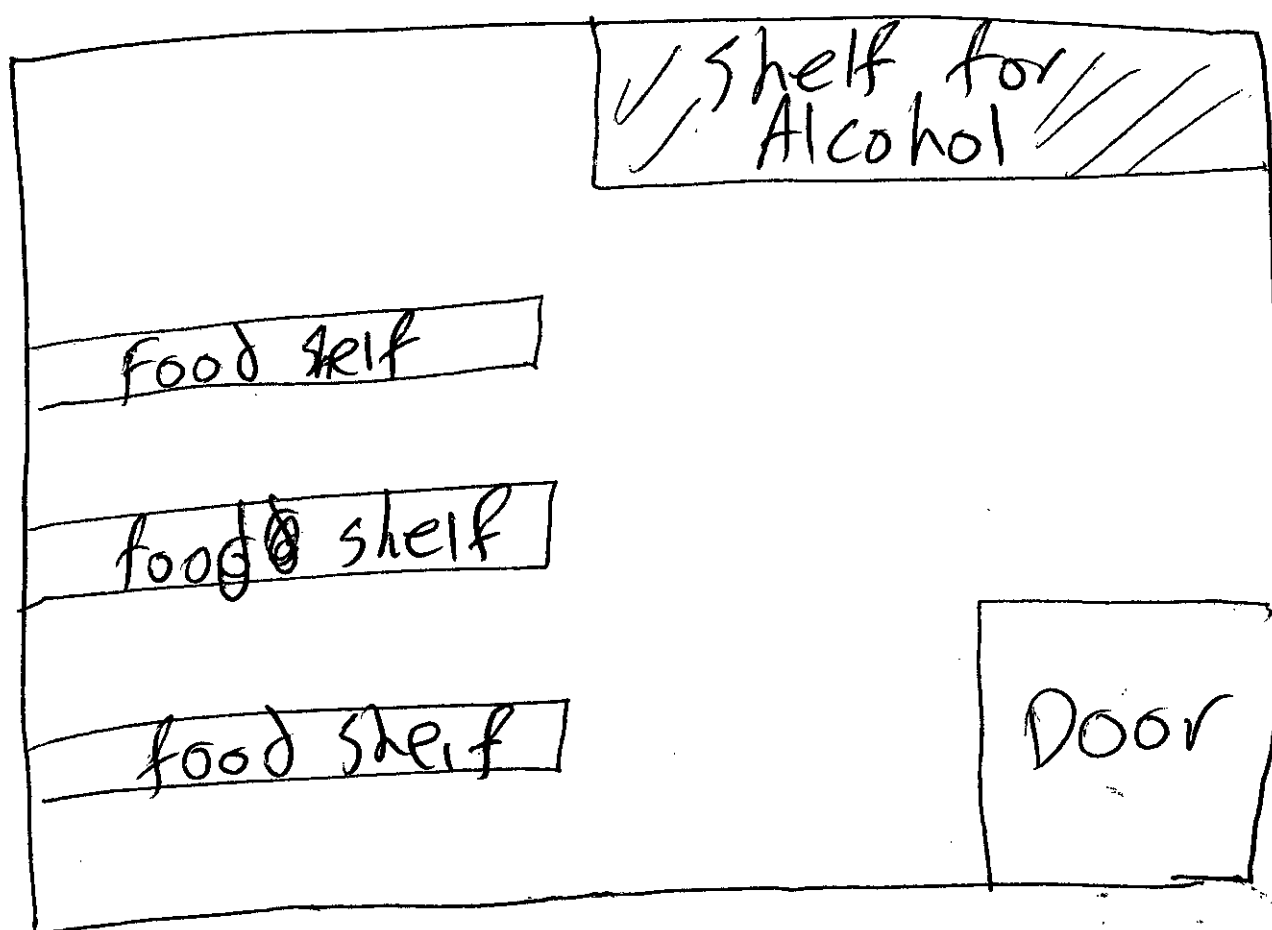 Shelf for
Alcohol
Food shelf
food shelf
food shelf
Door